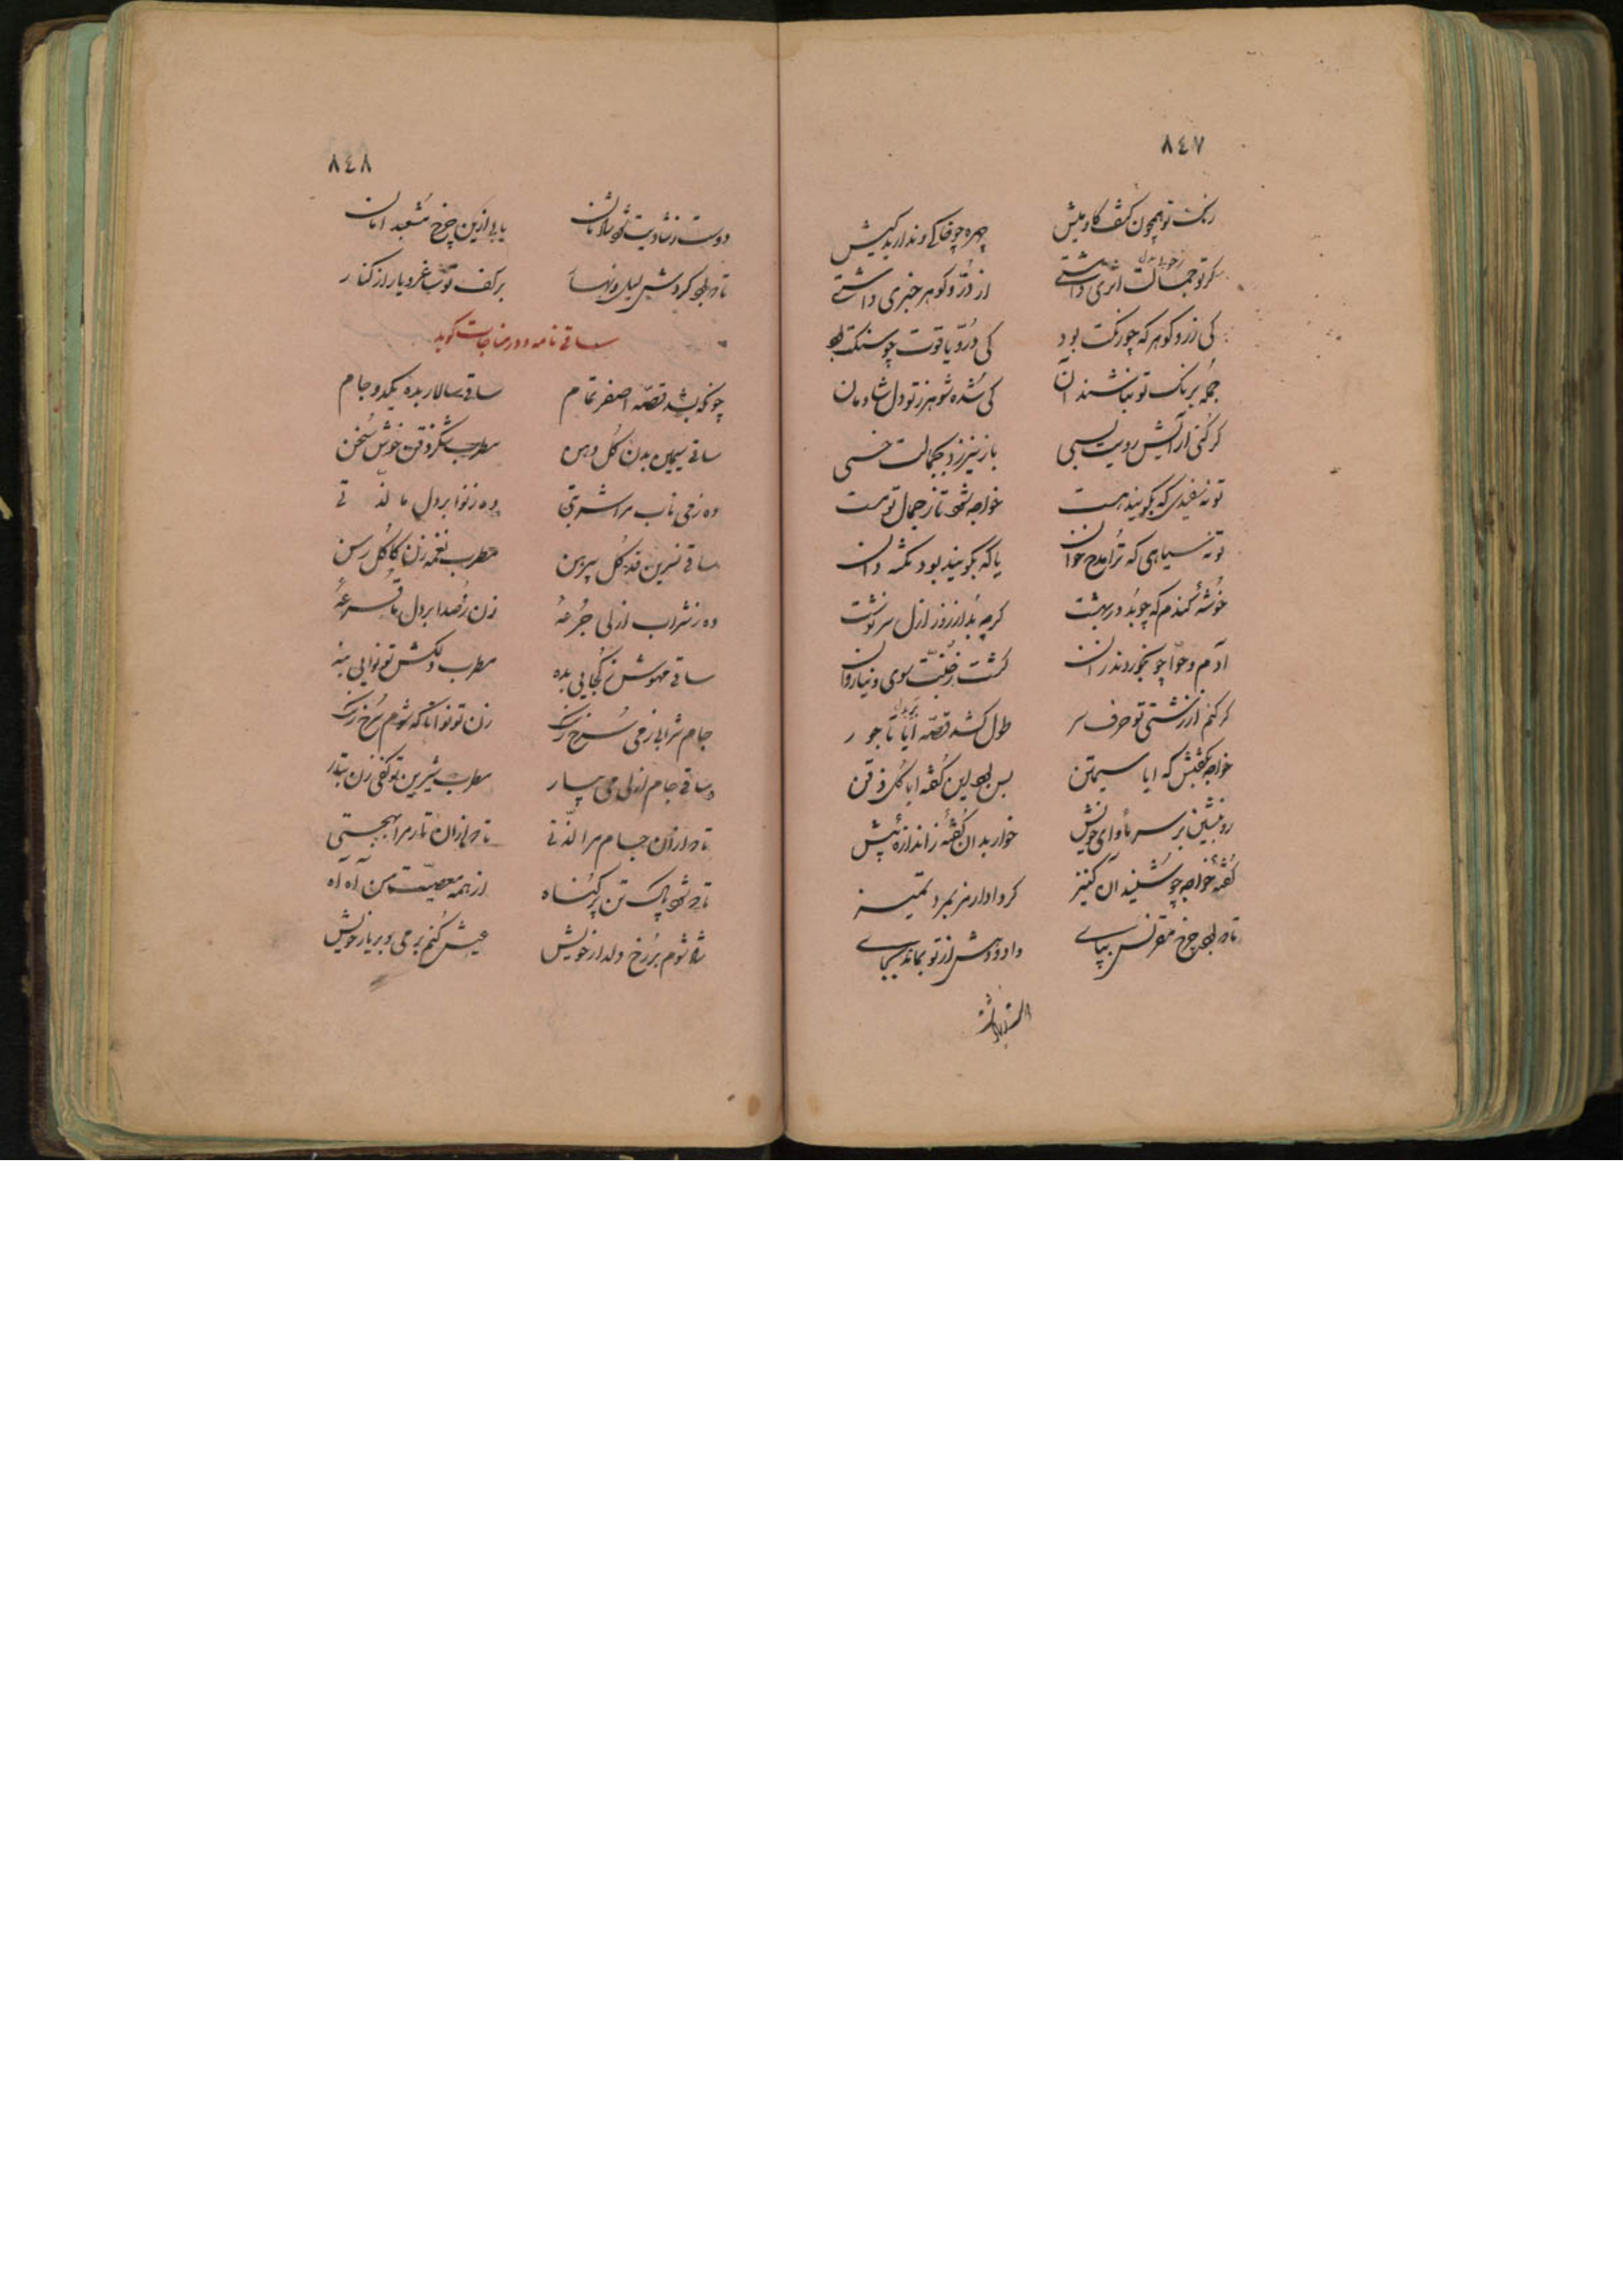 ٨٤٧
رنگ تو همچون کف گاومیش چهره چو خاکی و ندارید کیش
گر تو جمالت اثری داشتی از در و گوهر خبری داشتی
کی زر و گوهر که چو رنگت بود کی در و یاقوت چو سنگت بود
جمله برنگ تو نباشند آن کی شده شوهر ز تو دل شادمان
گر کنی آرایش رویت بسی باز نیرزد بجمالت خسی
تو نه سفیدی که بگویند هست خواجه شود تا ز جمال تو مست
تو نه سیاهی که ترا مدح خوان یا که بگویند بود نکته دان
خوشه گندم که چو بد در بهشت گرچه بد از روز ازل سرنوشت
آدم و حوا چو بخوردند از آن گشت ز جنت سوی دنیا روان
گر کنم از زشتی تو حرف سر طول کشد قصه ایا تاجور
خواجه بگفتش که ایا سیمتن بس بود این گفته ایا گل ذقن
رو بنشین بر سر مأوای خویش خوار بد آن گفته ز اندازه پیش
گفته خواجه چو شنید آن کنیز کرد ادا در نمرد تمیز
تا بود چرخ مقرنس بپای داد و دهش از تو بماند بجای
٨٤٨
دوست ز شادیت شود شادمان یابی ازین چرخ مشعبد امان
تا بود گردش لیل و نهار بر کف تو ساغر و یار از کنار
ساقی نامه و در مناجات گوید
چونکه بشد قصه اصفر تمام ساقی سالار بده یکدو جام
ساقی سیمین بدن گل دهن مطرب شکر ذقن خوش سخن
ده ز می ناب مرا شربتی ده ز نوا بر دل ما لذتی
ساقی نسرین قد گل پیرهن مطرب نغمه زن کاکل رسن
ده ز شراب ازلی جرعه زن ز صدا بر دل ما قرعه
ساقی مهوش ز کجایی بده مطرب دلکش تو نوایی بنه
جام شرابی ز می سرخ رنگ زن تو نوا تا که شوم سرخ رنگ
ساقی جام ازلی می بیار مطرب شیرین تو کفی زن بتار
تا دهد از آن جام مرا لذتی تا دهد از آن تار مرا بهجتی
تا شود پاک تن پر گناه از همه معصیت من آه آه
شاد شوم بر رخ دلدار خویش عیش کنم بر می و بر یار خویش